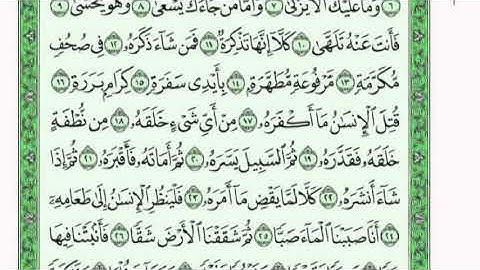 ﴿٦﴾ وَمَا عَلَيْكَ أَلَّا يَزَّكَّىٰ ﴿٧﴾ وَأَمَّا مَن جَاءَكَ يَسْعَىٰ ﴿٨﴾ وَهُوَ يَخْشَىٰ ﴿٩﴾
فَأَنتَ عَنْهُ تَلَهَّىٰ ﴿١٠﴾ كَلَّا إِنَّهَا تَذْكِرَةٌ ﴿١١﴾ فَمَن شَاءَ ذَكَرَهُ ﴿١٢﴾ فِي صُحُفٍ
مُّكَرَّمَةٍ ﴿١٣﴾ مَّرْفُوعَةٍ مُّطَهَّرَةٍ ﴿١٤﴾ بِأَيْدِي سَفَرَةٍ ﴿١٥﴾ كِرَامٍ بَرَرَةٍ ﴿١٦﴾
قُتِلَ الْإِنسَانُ مَا أَكْفَرَهُ ﴿١٧﴾ مِنْ أَيِّ شَيْءٍ خَلَقَهُ ﴿١٨﴾ مِن نُّطْفَةٍ
خَلَقَهُ فَقَدَّرَهُ ﴿١٩﴾ ثُمَّ السَّبِيلَ يَسَّرَهُ ﴿٢٠﴾ ثُمَّ أَمَاتَهُ فَأَقْبَرَهُ ﴿٢١﴾ ثُمَّ إِذَا
شَاءَ أَنشَرَهُ ﴿٢٢﴾ كَلَّا لَمَّا يَقْضِ مَا أَمَرَهُ ﴿٢٣﴾ فَلْيَنظُرِ الْإِنسَانُ إِلَىٰ طَعَامِهِ
﴿٢٤﴾ أَنَّا صَبَبْنَا الْمَاءَ صَبًّا ﴿٢٥﴾ ثُمَّ شَقَقْنَا الْأَرْضَ شَقًّا ﴿٢٦﴾ فَأَنبَتْنَا فِيهَا